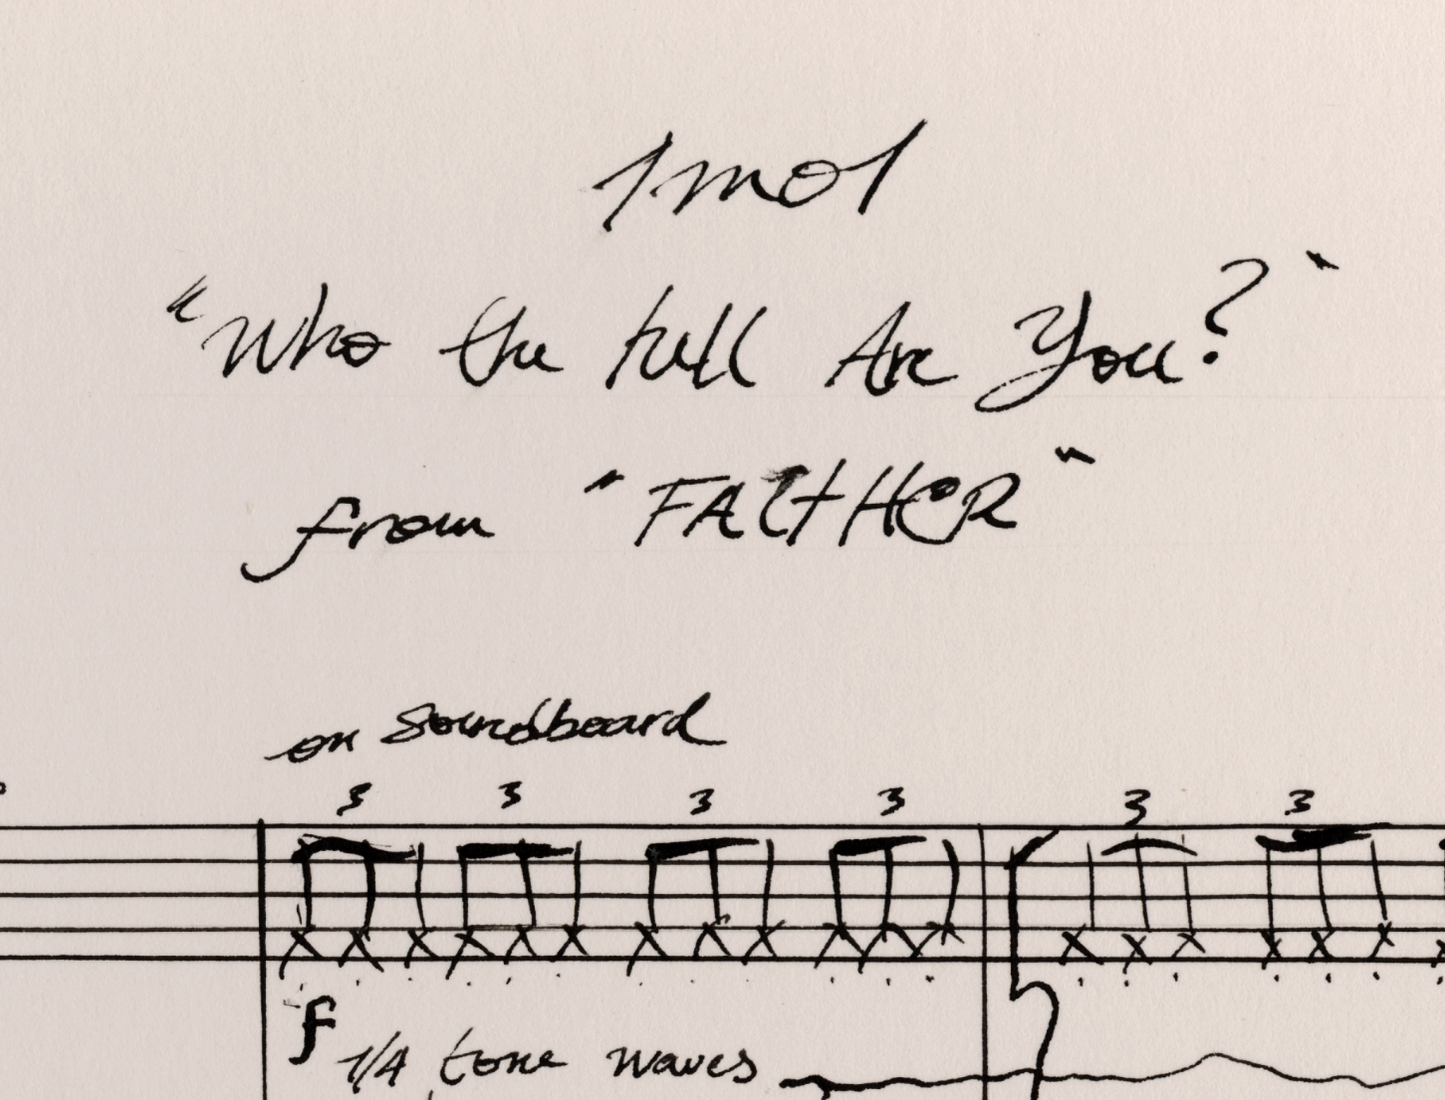 1mol
"Who the hell Are You?"
from "FATHER"
on Soundboard
3 3 3 3 3 3
f 1/4 tone waves